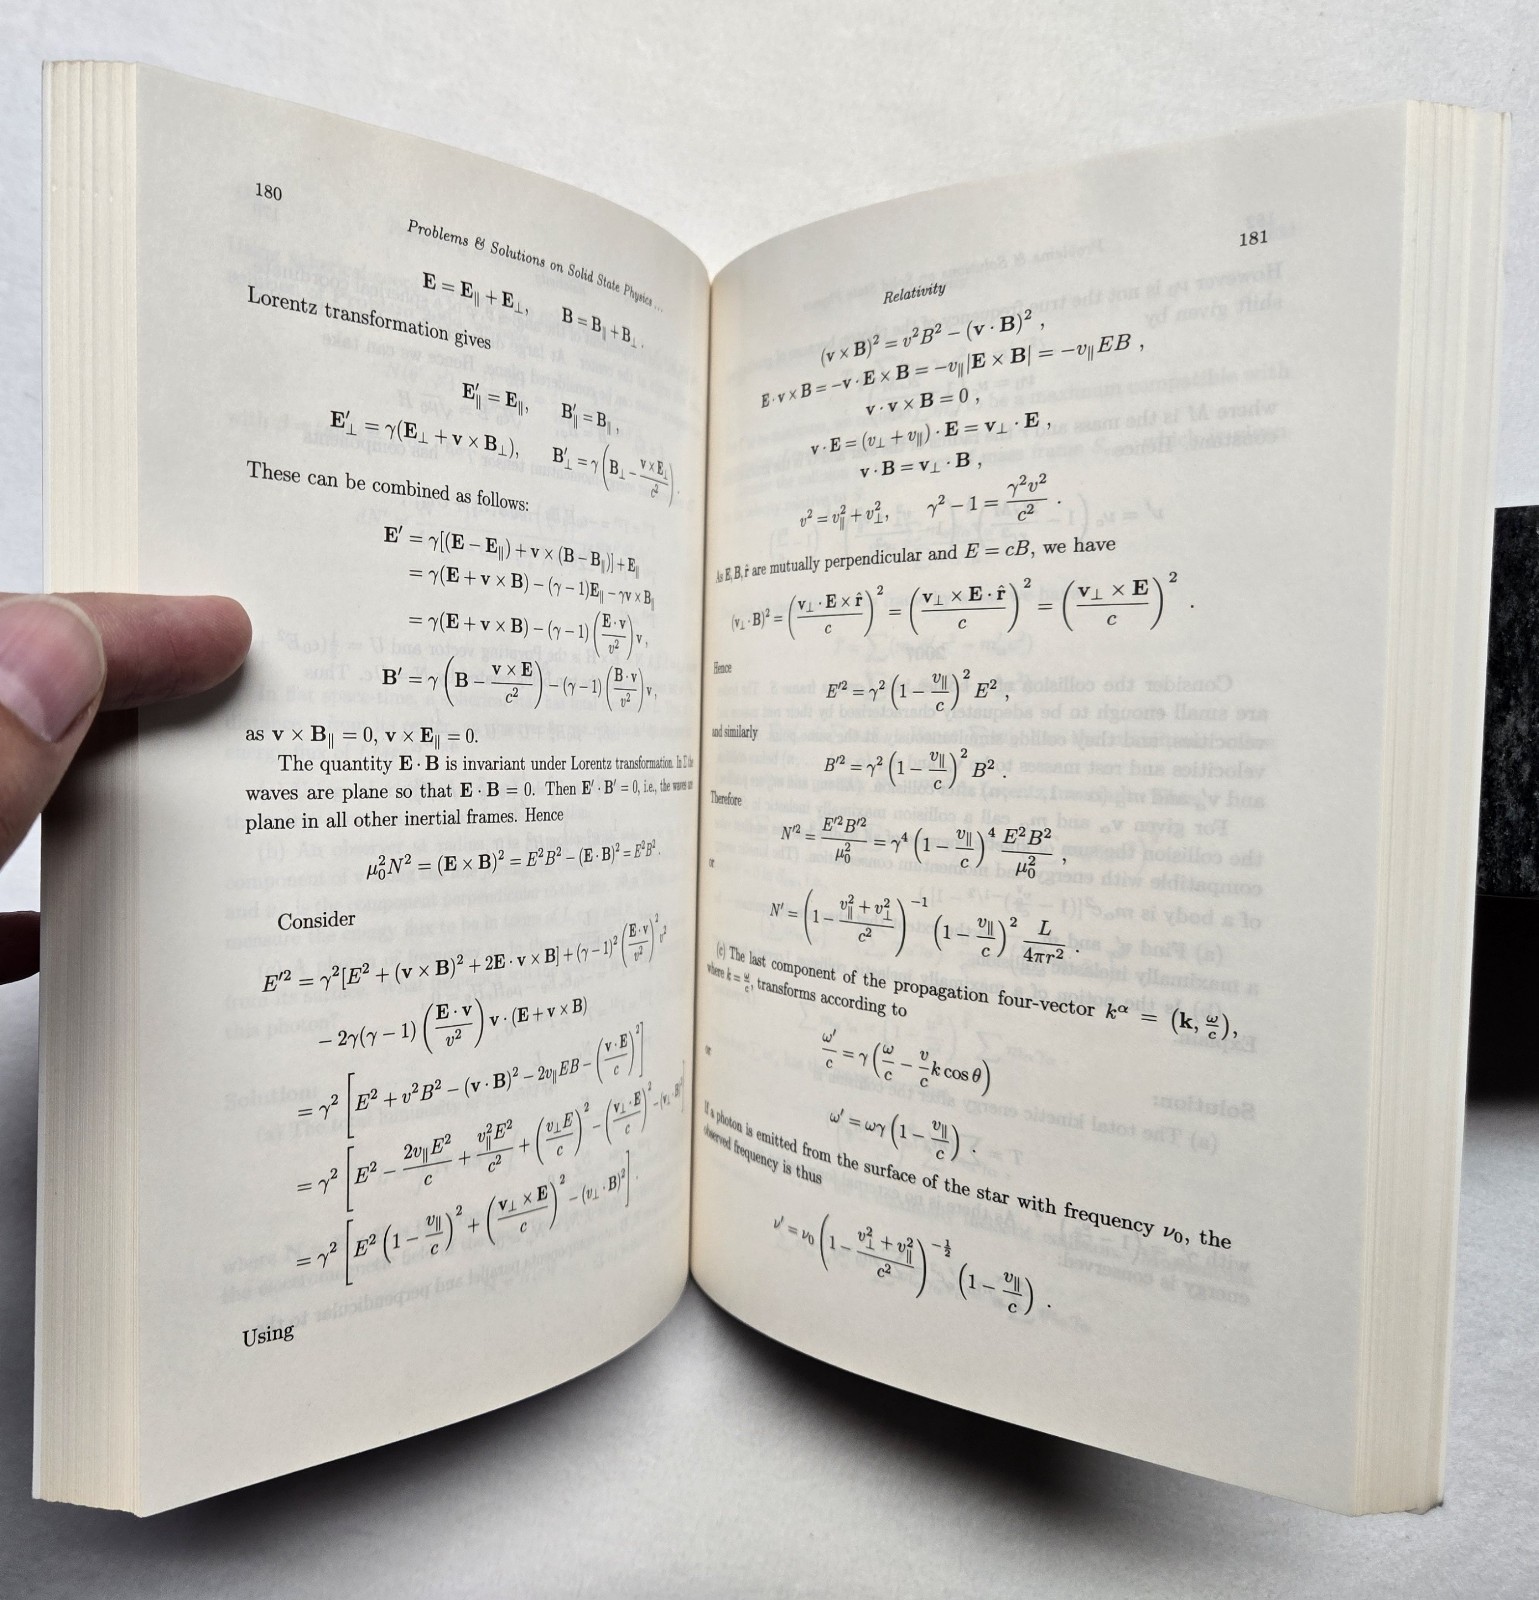 180
Problems & Solutions on Solid State Physics ...
E = E∥ + E⊥, B = B∥ + B⊥.
Lorentz transformation gives
E′∥ = E∥, B′∥ = B∥,
E′⊥ = γ(E⊥ + v × B⊥), B′⊥ = γ(B⊥ − v × E⊥/c²).
These can be combined as follows:
E′ = γ[(E − E∥) + v × (B − B∥)] + E∥
= γ(E + v × B) − (γ − 1)E∥ − γv × B∥
= γ(E + v × B) − (γ − 1)(E · v/v²)v,
B′ = γ(B − v × E/c²) − (γ − 1)(B · v/v²)v,
as v × B∥ = 0, v × E∥ = 0.
The quantity E · B is invariant under Lorentz transformation. In Σ the
waves are plane so that E · B = 0. Then E′ · B′ = 0, i.e., the waves are
plane in all other inertial frames. Hence
μ₀²N² = (E × B)² = E²B² − (E · B)² = E²B².
Consider
E′² = γ²[E² + (v × B)² + 2E · v × B] + (γ − 1)²(E · v/v²)²v²
− 2γ(γ − 1)(E · v/v²)v · (E + v × B)
= γ²[E² + v²B² − (v · B)² − 2v∥EB − (v · E/c)²]
= γ²[E² − 2v∥E²/c + v∥²E²/c² + (v⊥E/c)² − (v⊥ · E/c)² − (v⊥ · B)²]
= γ²[E²(1 − v∥/c)² + (v⊥ × E/c)² − (v⊥ · B)²].
Using
181
Relativity
(v × B)² = v²B² − (v · B)²,
E · v × B = −v · E × B = −v∥|E × B| = −v∥EB,
v · v × B = 0,
v · E = (v⊥ + v∥) · E = v⊥ · E,
v · B = v⊥ · B,
v² = v∥² + v⊥², γ² − 1 = γ²v²/c².
As E, B, r̂ are mutually perpendicular and E = cB, we have
(v⊥ · B)² = (v⊥ · E × r̂/c)² = (v⊥ × E · r̂/c)² = (v⊥ × E/c)².
Hence
E′² = γ²(1 − v∥/c)²E²,
and similarly
B′² = γ²(1 − v∥/c)²B².
Therefore
N′² = E′²B′²/μ₀² = γ⁴(1 − v∥/c)⁴ E²B²/μ₀²,
or
N′ = (1 − (v∥² + v⊥²)/c²)⁻¹ (1 − v∥/c)² L/4πr².
(c) The last component of the propagation four-vector kᵅ = (k, ω/c),
where k = ω/c, transforms according to
ω′/c = γ(ω/c − v/c k cos θ)
or
ω′ = ωγ(1 − v∥/c).
If a photon is emitted from the surface of the star with frequency ν₀, the
observed frequency is thus
ν′ = ν₀(1 − (v⊥² + v∥²)/c²)^(−1/2) (1 − v∥/c).